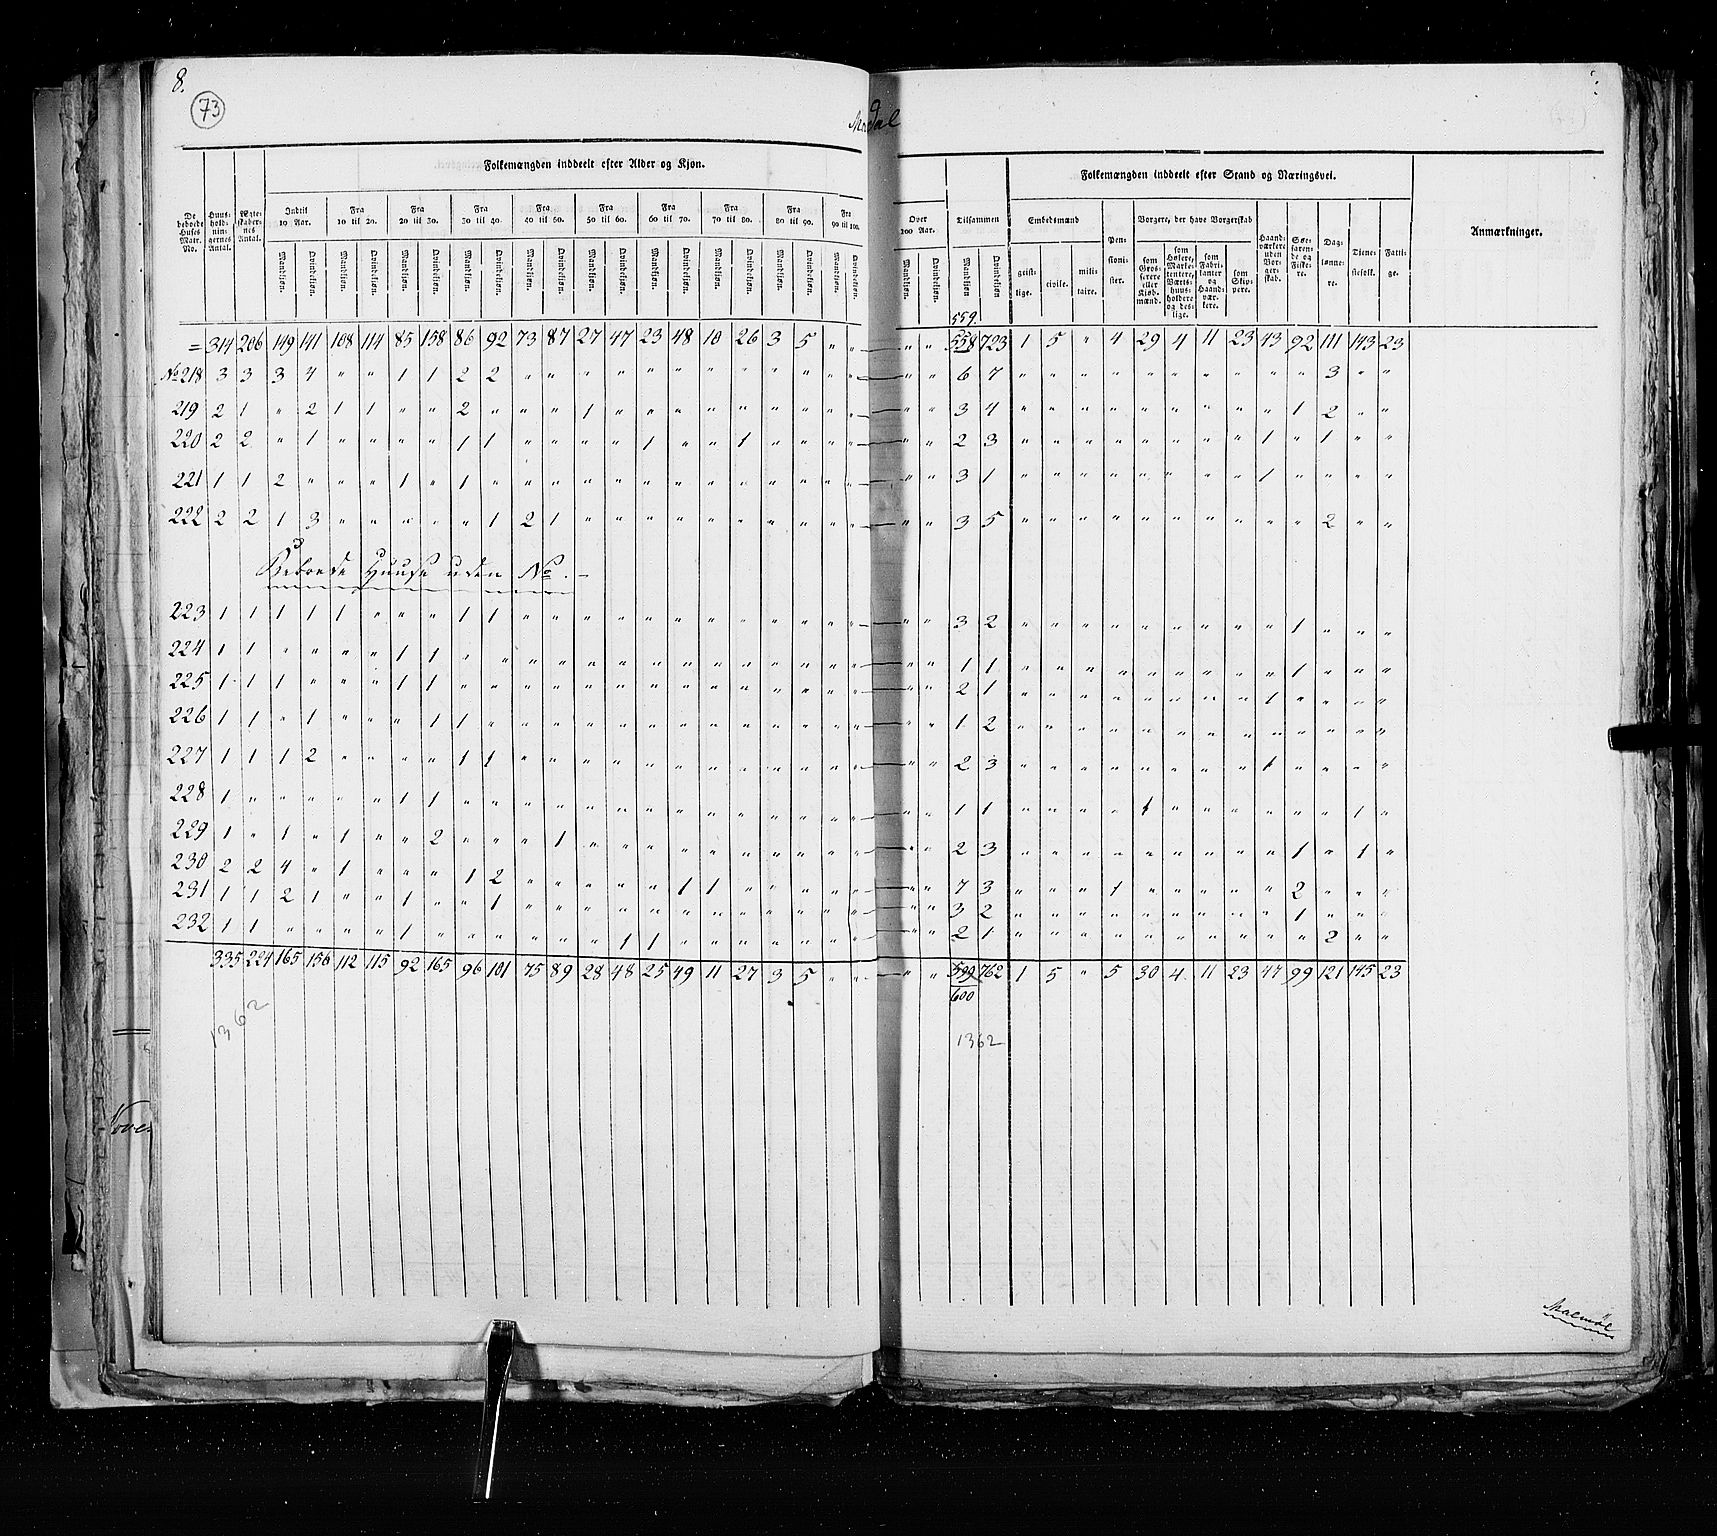 8.
73
Mandal
Folkemængden inddeelt efter Alder og Kjøn.
Folkemængden inddeelt efter Stand og Næringsvei.
De beboede Huses Matr. No.
Huusholdningernes Antal.
Ægteskabernes Antal.
Indtil 10 Aar.
Fra 10 til 20.
Fra 20 til 30.
Fra 30 til 40.
Fra 40 til 50.
Fra 50 til 60.
Fra 60 til 70.
Fra 70 til 80.
Fra 80 til 90.
Fra 90 til 100.
Over 100 Aar.
Tilsammen
Mandkjøn. Qvindekjøn.
Embedsmænd
geistlige. civile. militaire.
Pensionister.
Borgere, der have Borgerskab
som Grosserere eller Kjøbmænd.
som Høkere, Marketentere, Værtshuusholdere og deslige.
som Fabrikanter og Haandværkere.
som Skippere.
Haandværkere uden Borgerskab.
Søefarende og Fiskere.
Daglønnere.
Tienestefolk.
Fattige.
Anmærkninger.
559.
= 314 206 149 141 108 114 85 158 86 92 73 87 27 47 23 48 10 26 3 5 " " " " 558 723 1 5 " 4 29 4 11 23 43 92 111 143 23
No 218 3 3 3 4 " " 1 1 2 2 " " " " " " " " " " " " " " 6 7 " " " " " " " " " " 3 " "
219 2 1 " 2 1 1 " " 2 " " " 1 " " " " " " " " " " " 3 4 " " " " " " " " " 1 2 " "
220 2 2 " 1 " " " " 1 1 " " " " 1 " " 1 " " " " " " 2 3 " " " " " " " " 1 " 1 " "
221 1 1 2 " " " 1 " 1 " " " " " " " " " " " " " " " 3 1 " " " " " " " " 1 " " " "
222 2 2 1 3 " " " " " 1 2 1 " " " " " " " " " " " " 3 5 " " " " " " " " " " 2 " "
Beboede Huuse uden No. –
223 1 1 1 1 1 " " " 1 1 " " " " " " " " " " " " " " 3 2 " " " " " " " " " 1 " " "
224 1 1 " " " " 1 1 " " " " " " " " " " " " " " " " 1 1 " " " " " " " " " 1 " " "
225 1 1 1 " " " 1 1 " " " " " " " " " " " " " " " " 2 1 " " " " " " " " 1 " " " "
226 1 1 " 1 " " " 1 1 " " " " " " " " " " " " " " " 1 2 " " " " " " " " " " " " "
227 1 1 1 2 " " " " 1 1 " " " " " " " " " " " " " " 2 3 " " " " " " " " 1 " " " "
228 1 " " " " " 1 1 " " " " " " " " " " " " " " " " 1 1 " " " " 1 " " " " " " 1 "
229 1 " 1 " 1 " " 2 " " " 1 " " " " " " " " " " " " 2 3 " " " " " " " " " 1 " 1 "
230 2 2 4 " 1 " " " 1 2 " " " " 1 1 " " " " " " " " 7 3 " " " 1 " " " " " 2 " " "
231 1 1 2 1 " " 1 " " 1 " " " " " " " " " " " " " " 3 2 " " " " " " " " " 1 " " "
232 1 1 " " " " 1 " " " " " " 1 1 " " " " " " " " " 2 1 " " " " " " " " " " 2 " "
335 224 165 156 112 115 92 165 96 101 75 89 28 48 25 49 11 27 3 5 " " " " 599 762 1 5 " 5 30 4 11 23 47 99 121 145 23
600
1362
1362